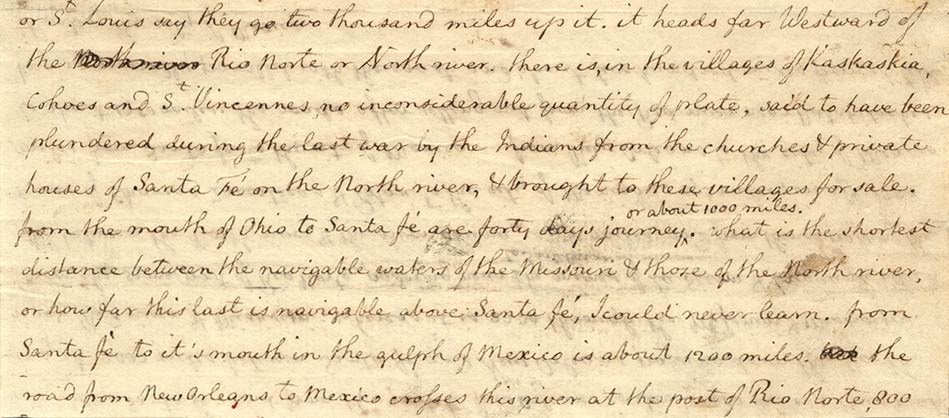 or St. Louis say they go two thousand miles up it. it heads far Westward of
the North river Rio Norte or North river. there is, in the villages of Kaskaskia,
Cohoes and St. Vincennes, no inconsiderable quantity of plate, said to have been
plundered during the last war by the Indians from the churches & private
houses of Santa Fé on the North river, & brought to these villages for sale.
or about 1000 miles.
from the mouth of Ohio to Santa fé are forty days journey,^. what is the shortest
distance between the navigable waters of the Missouri & those of the North river,
or how far this last is navigable above Santa fé, I could never learn. from
Santa fé to it's mouth in the gulph of Mexico is about 1200 miles. the
road from New Orleans to Mexico crosses this river at the post of Rio Norte 800